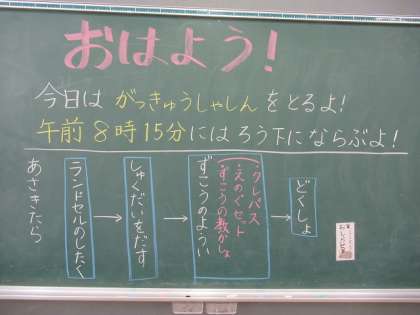 おはよう!
今日は がっきゅうしゃしん をとるよ!
午前8時15分にはろう下にならぶよ!
あさきたら
ランドセルのしたく
→
しゅくだいをだす
→
ずこうのようい
(クレパス
・えのぐセット
・ずこうの教かしょ
→
どくしょ